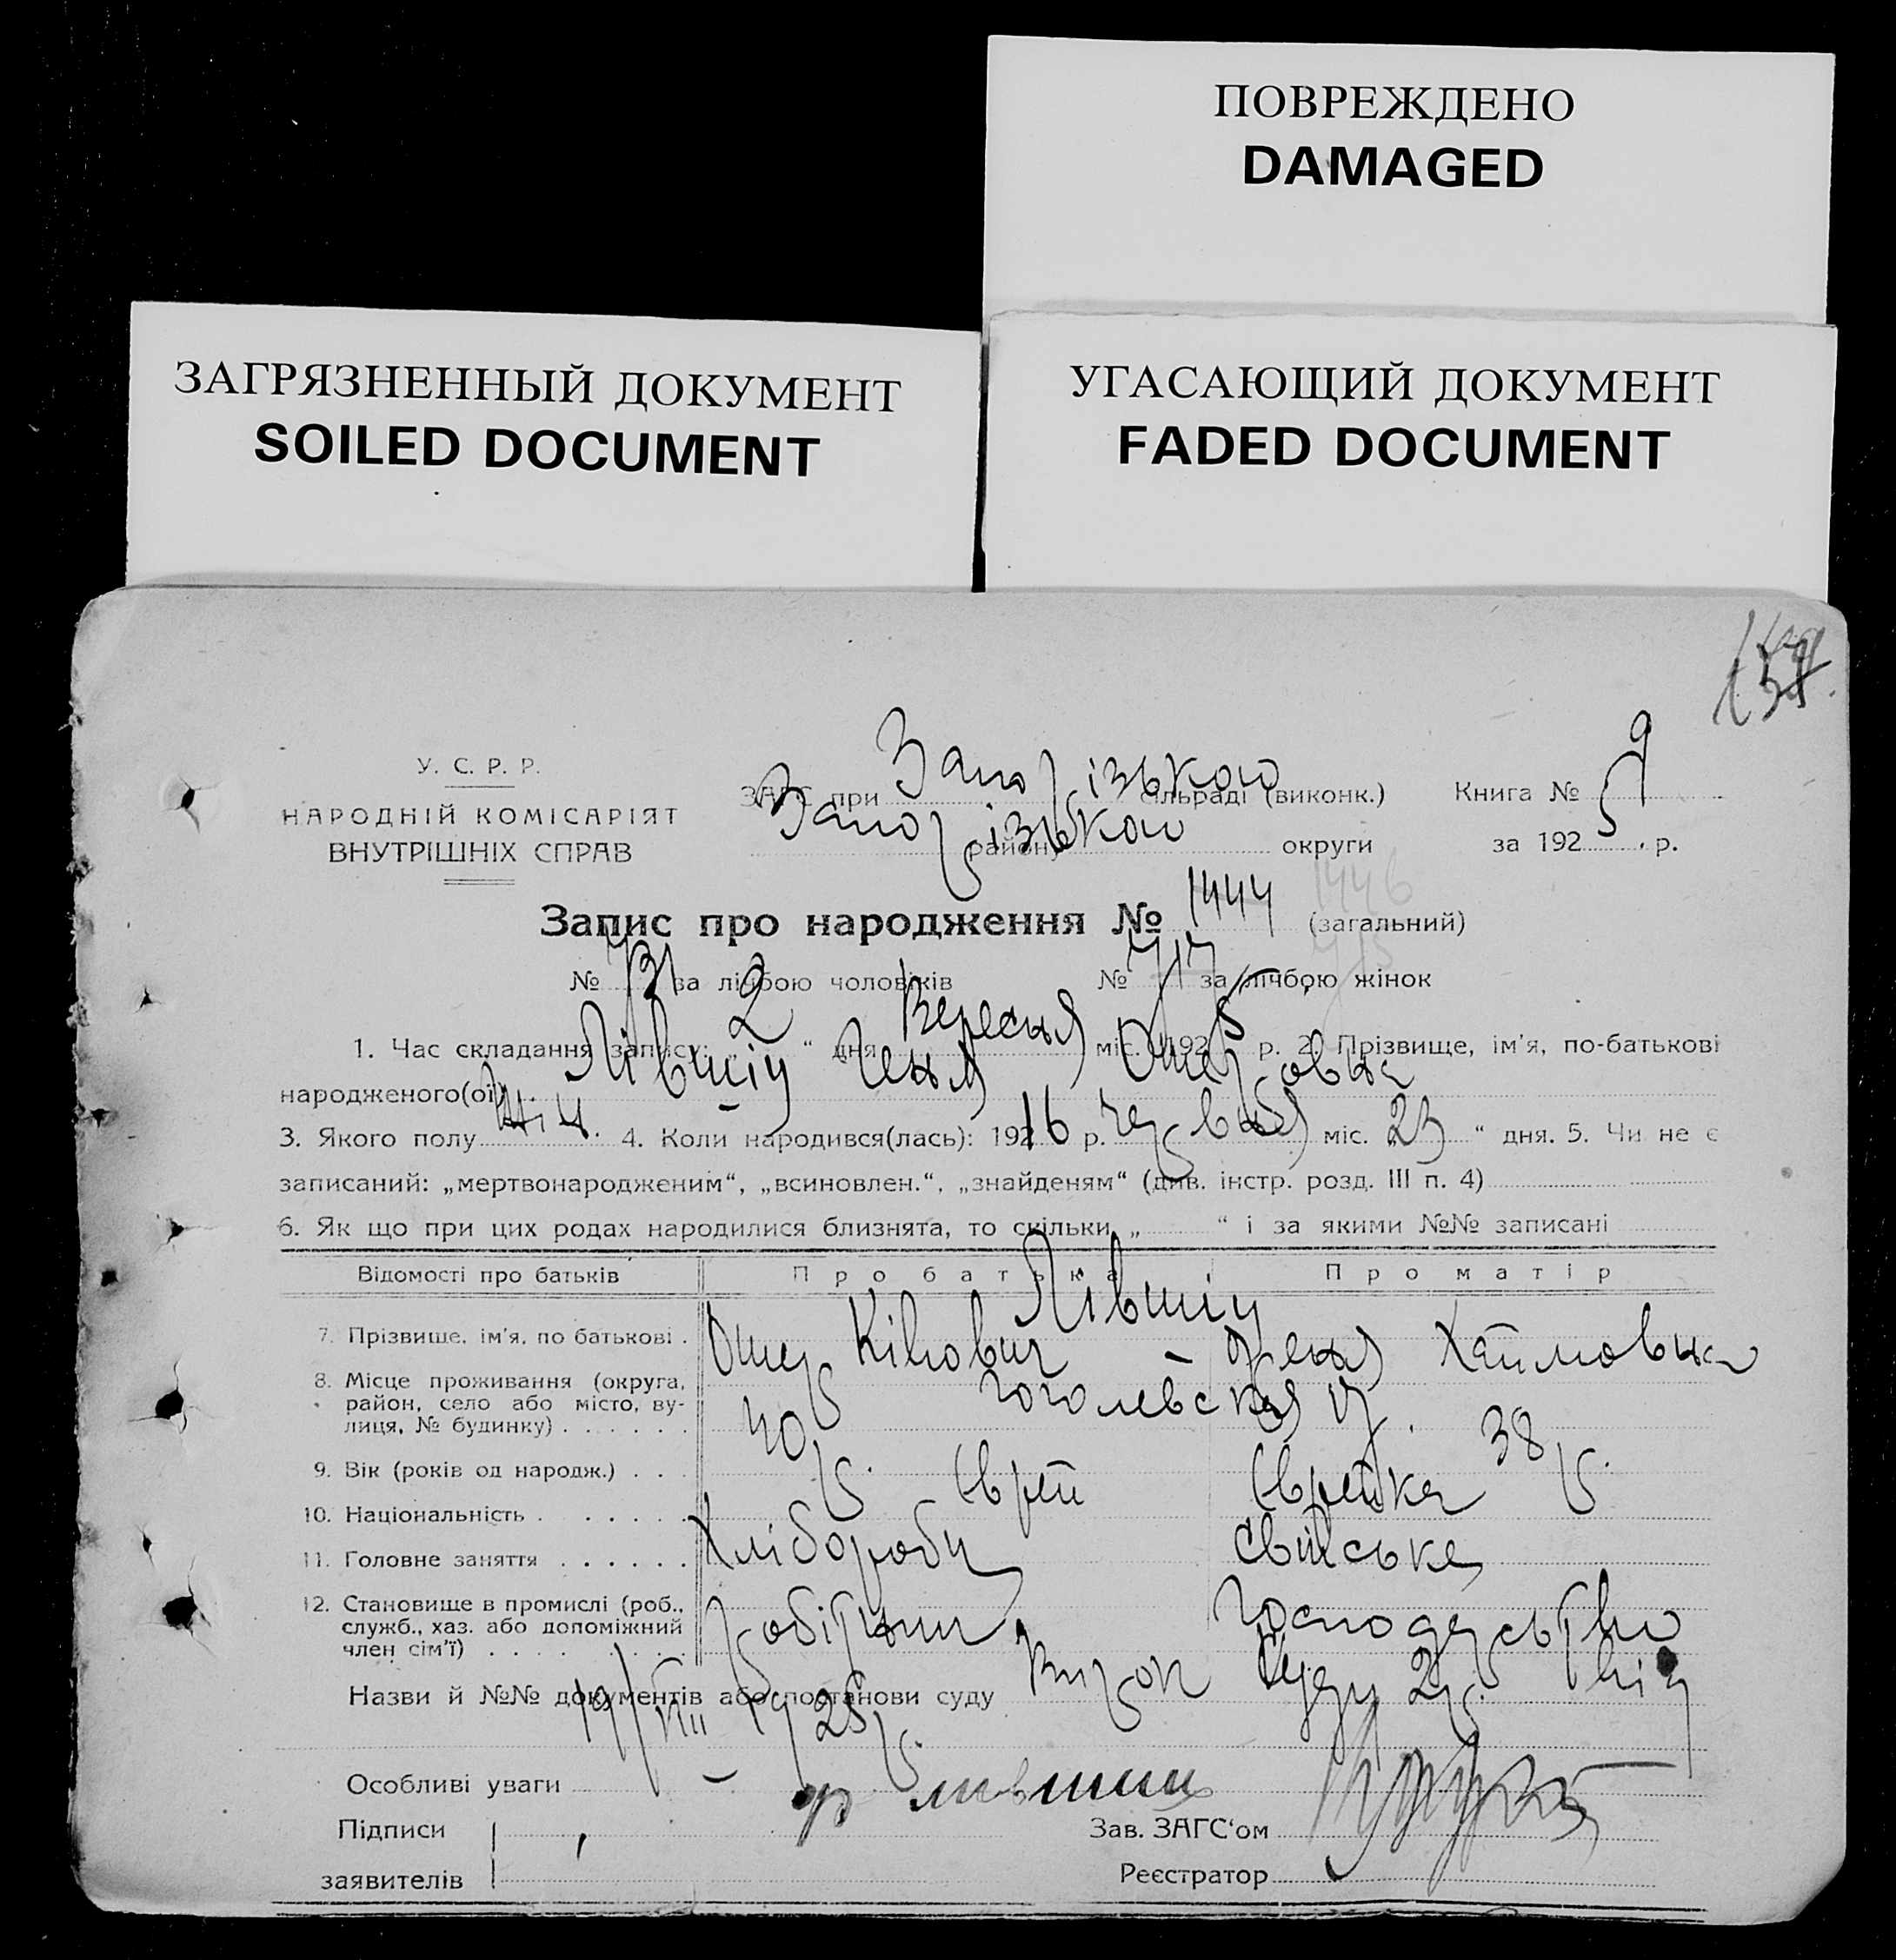 ПОВРЕЖДЕНО
DAMAGED
ЗАГРЯЗНЕННЫЙ ДОКУМЕНТ
SOILED DOCUMENT
УГАСАЮЩИЙ ДОКУМЕНТ
FADED DOCUMENT
У. С. Р. Р.
НАРОДНІЙ КОМІСАРІЯТ
ВНУТРІШНІХ СПРАВ
ЗАГС при Запорізькою сільраді (виконк.)
Запорізькою району округи
Книга № 9
за 1925 . р.
Запис про народження № 1444 (загальний)
1446
№ 731 за лічбою чоловіків № 717 за лічбою жінок
1. Час складання запису: „ 2 “ дня Вересня міс. 1925 р. 2. Прізвище, ім'я, по-батькові
народженого(ої) Лівшіц Геня Ошеровна
3. Якого полу Жін. 4. Коли народився(лась): 19216 р. червня міс. „ 23 “ дня. 5. Чи не є
записаний: „мертвонародженим“, „всиновлен.“, „знайденям“ (див. інстр. розд. III п. 4)
6. Як що при цих родах народилися близнята, то скільки „ “ і за якими №№ записані
Відомості про батьків Про батька Про матір
Лівшіц
7. Прізвише, ім'я, по батькові . Ошер Кінович - Хаймовна
8. Місце проживання (округа, район, село або місто, вулиця, № будинку) . . . . . . Гоголевская 17.
9. Вік (років од народж.) . . . 40 р. 38 р.
10. Національність . . . . . . Єврей Єврейка
11. Головне заняття . . . . . . Хлібороби Свійське
12. Становище в промислі (роб., служб., хаз. або допоміжний член сім'ї) . . . . . . . . робітник господарство
Назви й №№ документів або постанови суду Вирок Суду 2 р. від
19/VIII 1925 р.
Особливі уваги -
Підписи
заявителів
лившиц
Зав. ЗАГС'ом
Реєстратор